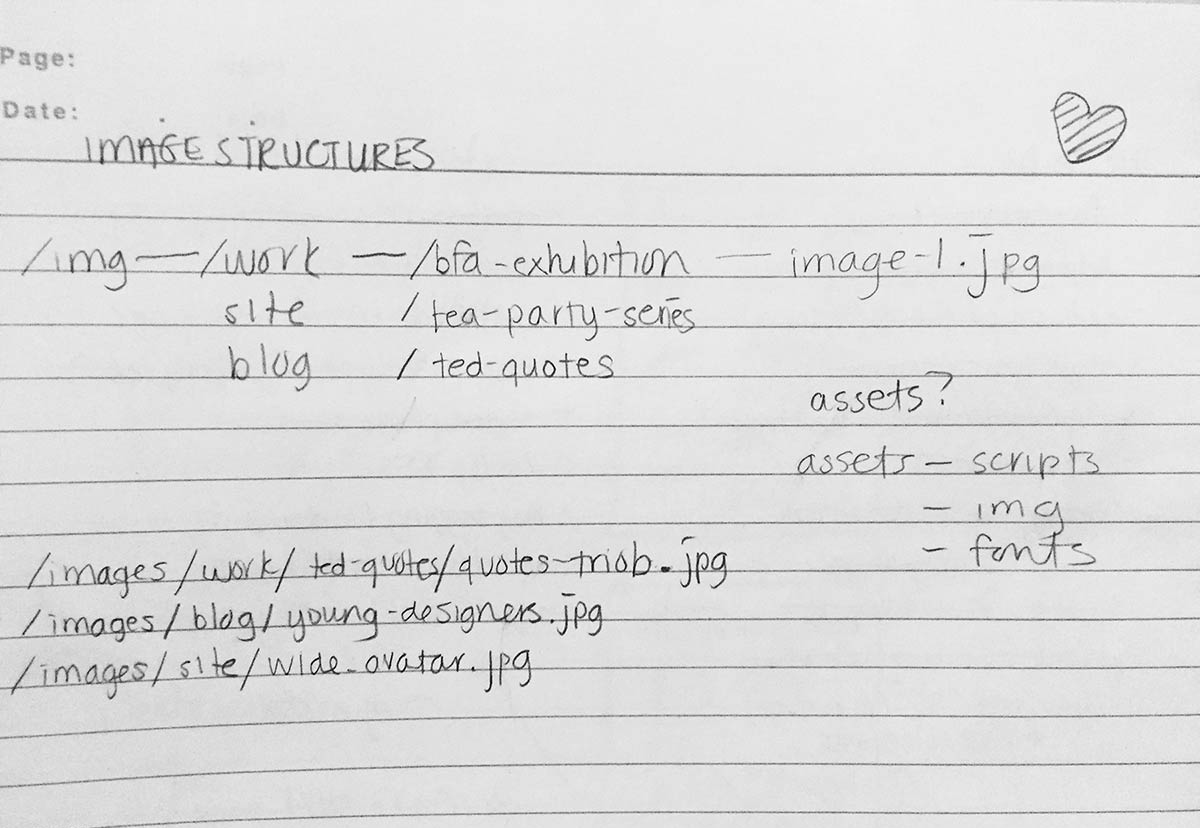 Page:
Date:
IMAGE STRUCTURES
/img — /work — /bfa-exhibition — image-1.jpg
site /tea-party-series
blog /ted-quotes
assets?
assets - scripts
- img
- fonts
/images/work/ted-quotes/quotes-triob.jpg
/images/blog/young-designers.jpg
/images/site/wide-avatar.jpg